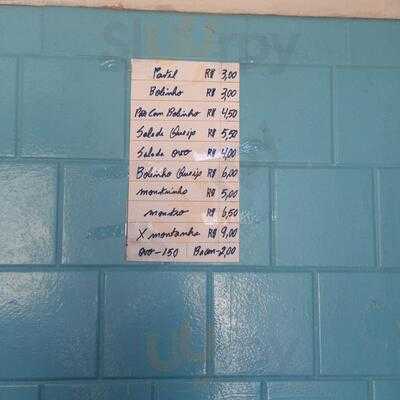 Pastel R$ 3,00
Bolinho R$ 3,00
Pão Com Bolinho R$ 4,50
Salada Queijo R$ 5,50
Salada ovo R$ 4,00
Bolinho Queijo R$ 6,00
R$ 5,00
R$ 6,50
X montanha R$ 9,00
Ovo-1,50 Bacon-2,00